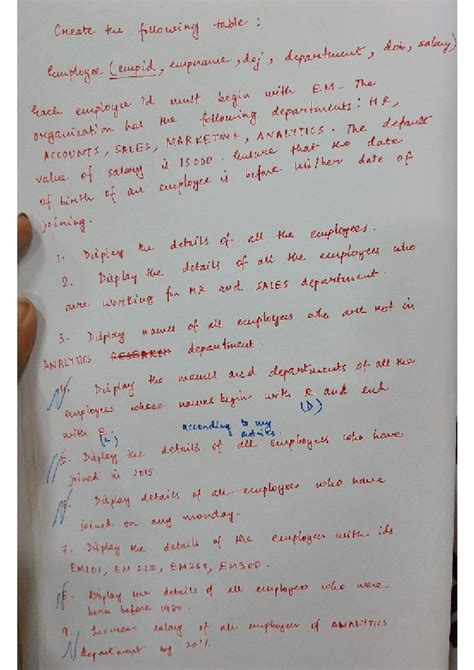 Create the following table :
Employee (empid, empname, doj, department, dob, salary)
Each employee id must begin with EM. The
organization has the following departments: HR,
ACCOUNTS, SALES, MARKETING, ANALYTICS. The default
value of salary is 15000. Ensure that the date
of birth of an employee is before his/her date of
joining.
1. Display the details of all the employees.
2. Display the details of all the employees who
are working for HR and SALES department.
3. Display names of all employees who are not in
ANALYTICS RESEARCH department.
4. Display the names and departments of all the
employees whose names begin with R and end
(D)
with E.
(L)
according to my
details.
5. Display the details of all employees who have
joined in 2015.
6. Display details of all employees who have
joined on any monday.
7. Display the details of the employees with ids
EM101, EM220, EM250, EM300.
8. Display the details of all employees who were
born before 1980.
9. Increase salary of all employees of ANALYTICS
department by 20%.